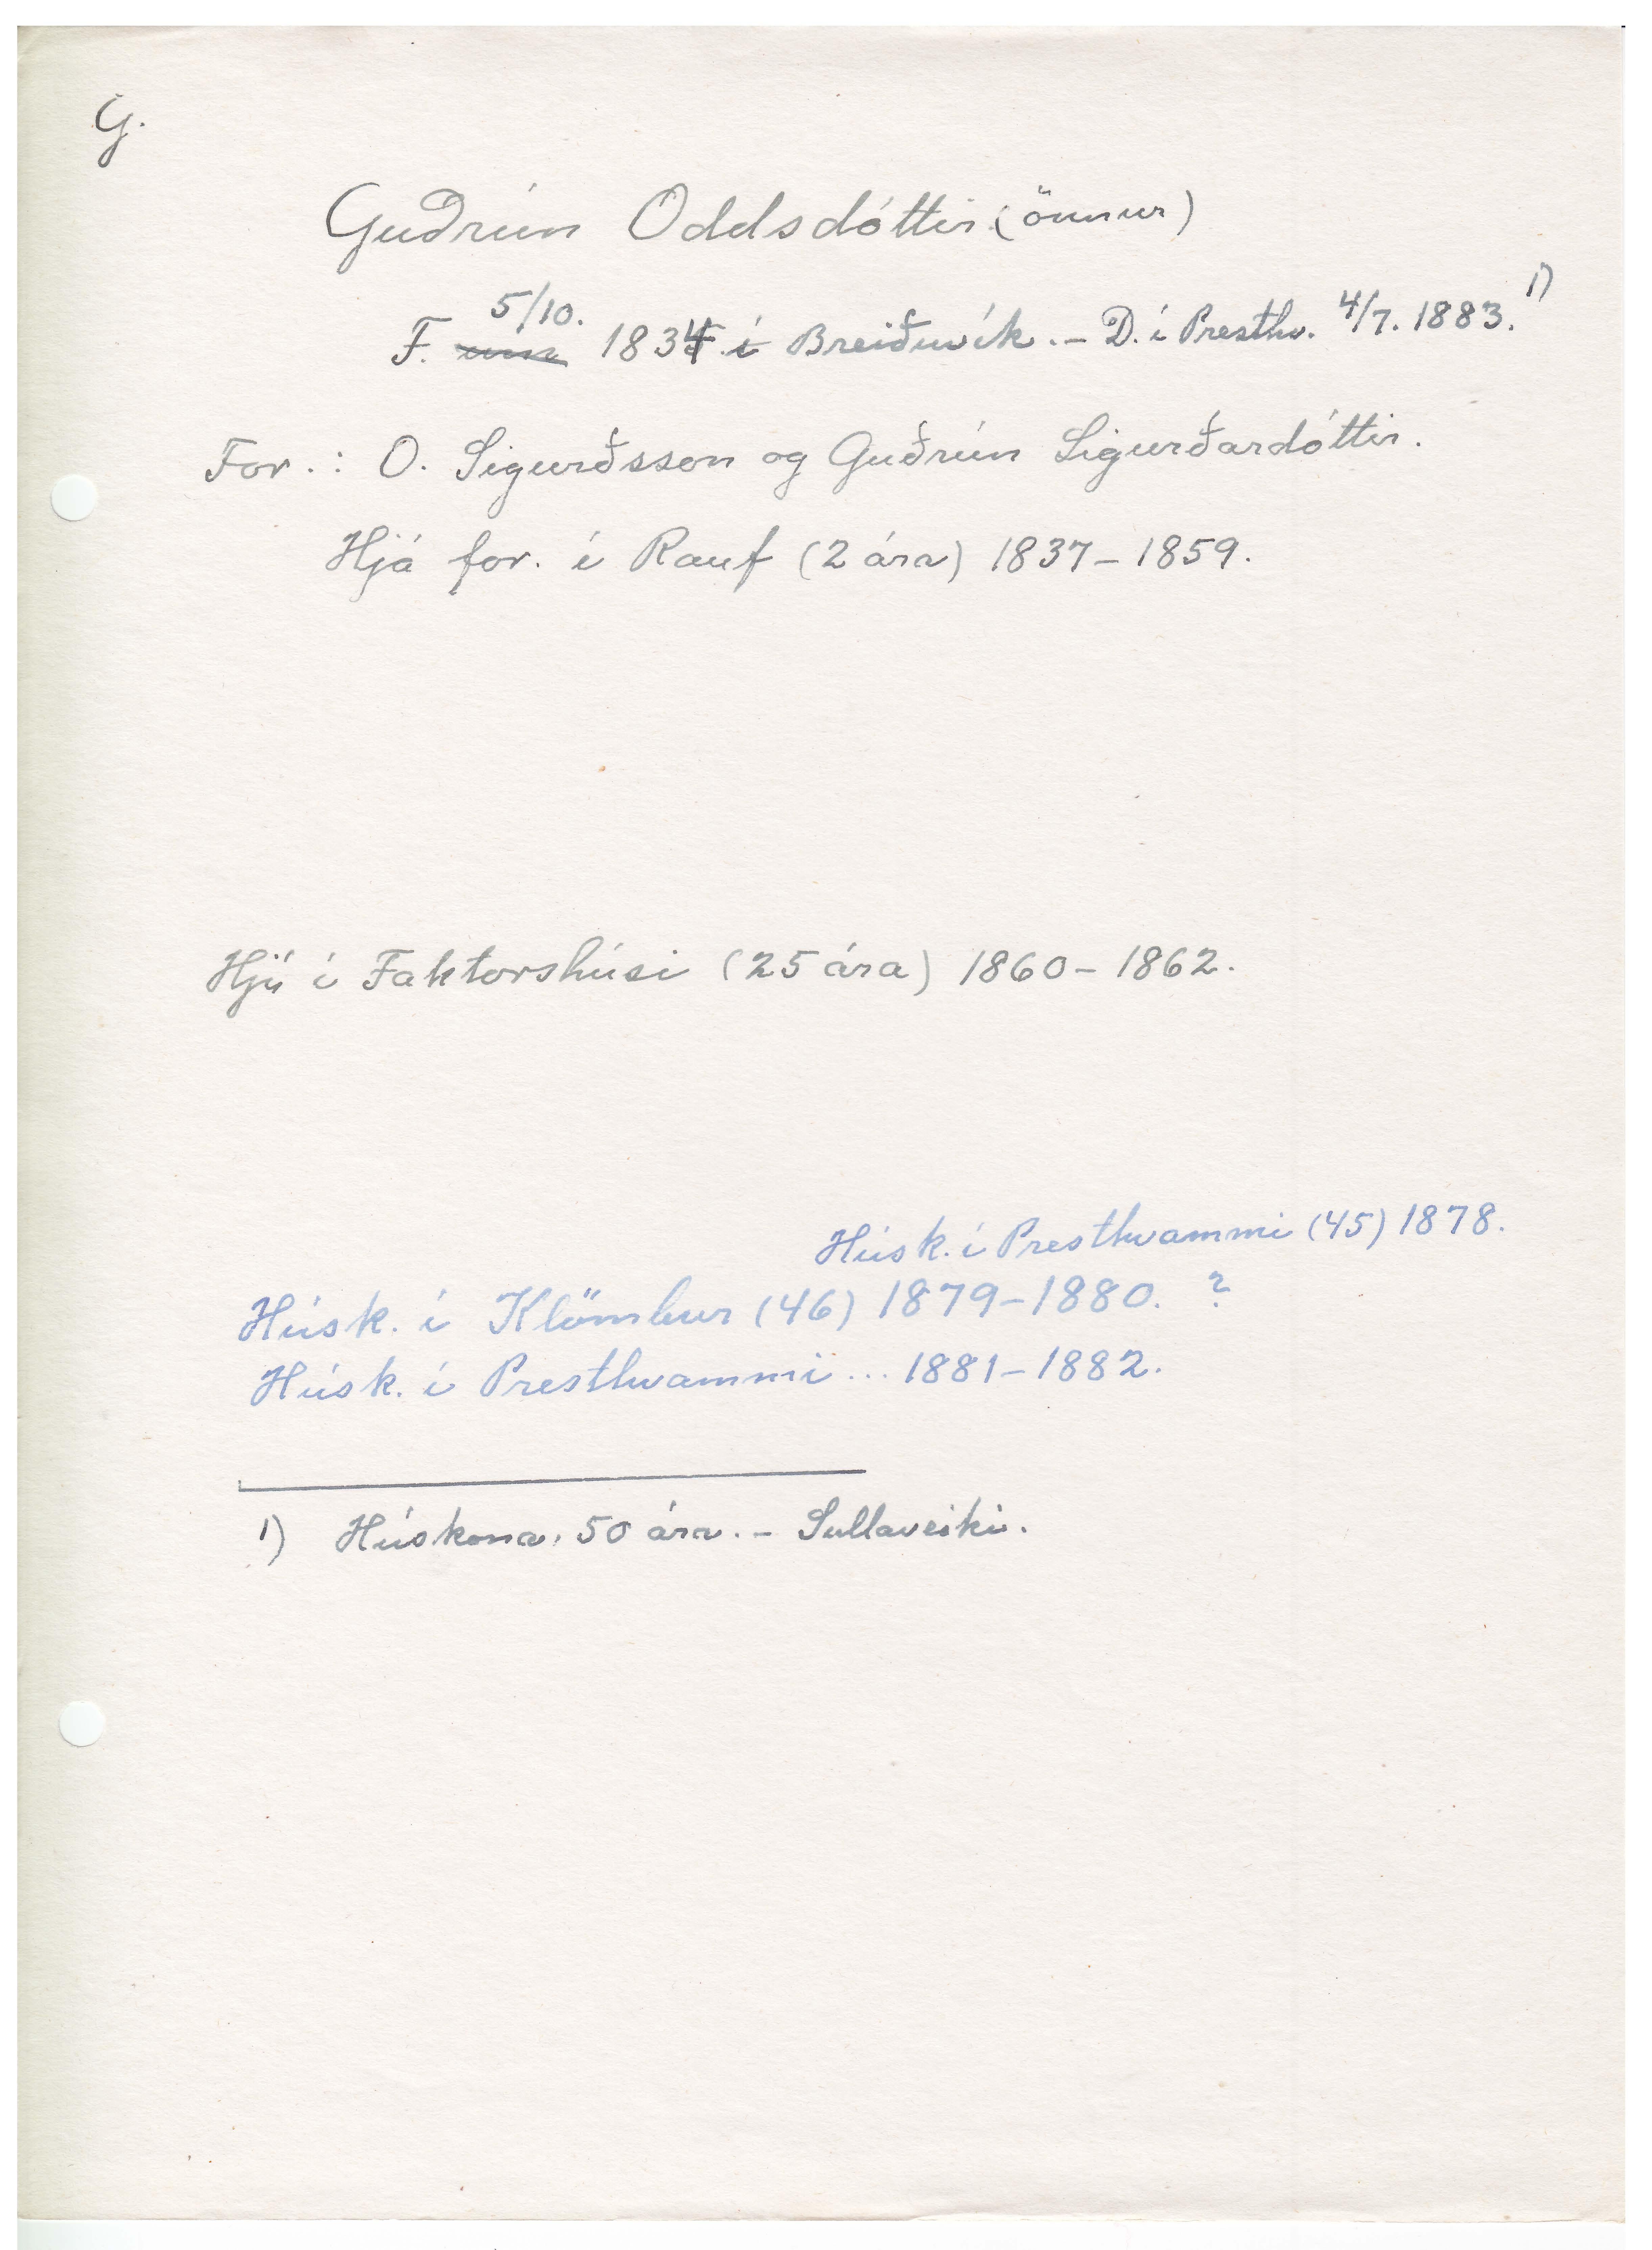 G.
Guðrún Oddsdóttir (önnur)
F. 5/10. 1834 í Breiðuvík. – D. í Presthv. 4/7. 1883. 1)
For.: O. Sigurðsson og Guðrún Sigurðardóttir.
Hjá for. í Rauf (2 ára) 1837–1859.
Hjú í Faktorshúsi (25 ára) 1860–1862.
Húsk. í Presthvammi (45) 1878.
Húsk. í Klömbur (46) 1879–1880. ?
Húsk. í Presthvammi ... 1881–1882.
1) Húskona, 50 ára. – Sullaveiki.